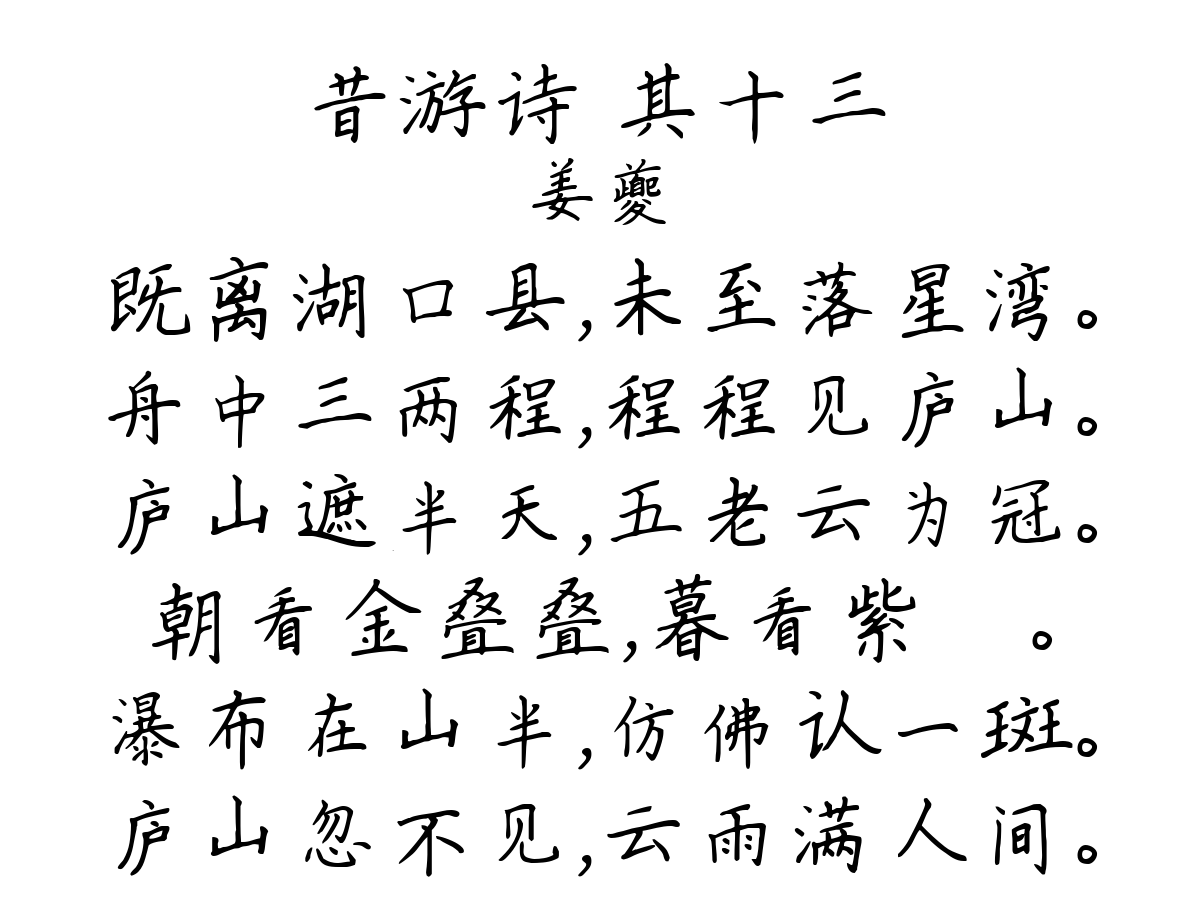 昔游诗 其十三
姜夔
既离湖口县,未至落星湾。
舟中三两程,程程见庐山。
庐山遮半天,五老云为冠。
朝看金叠叠,暮看紫 。
瀑布在山半,仿佛认一斑。
庐山忽不见,云雨满人间。